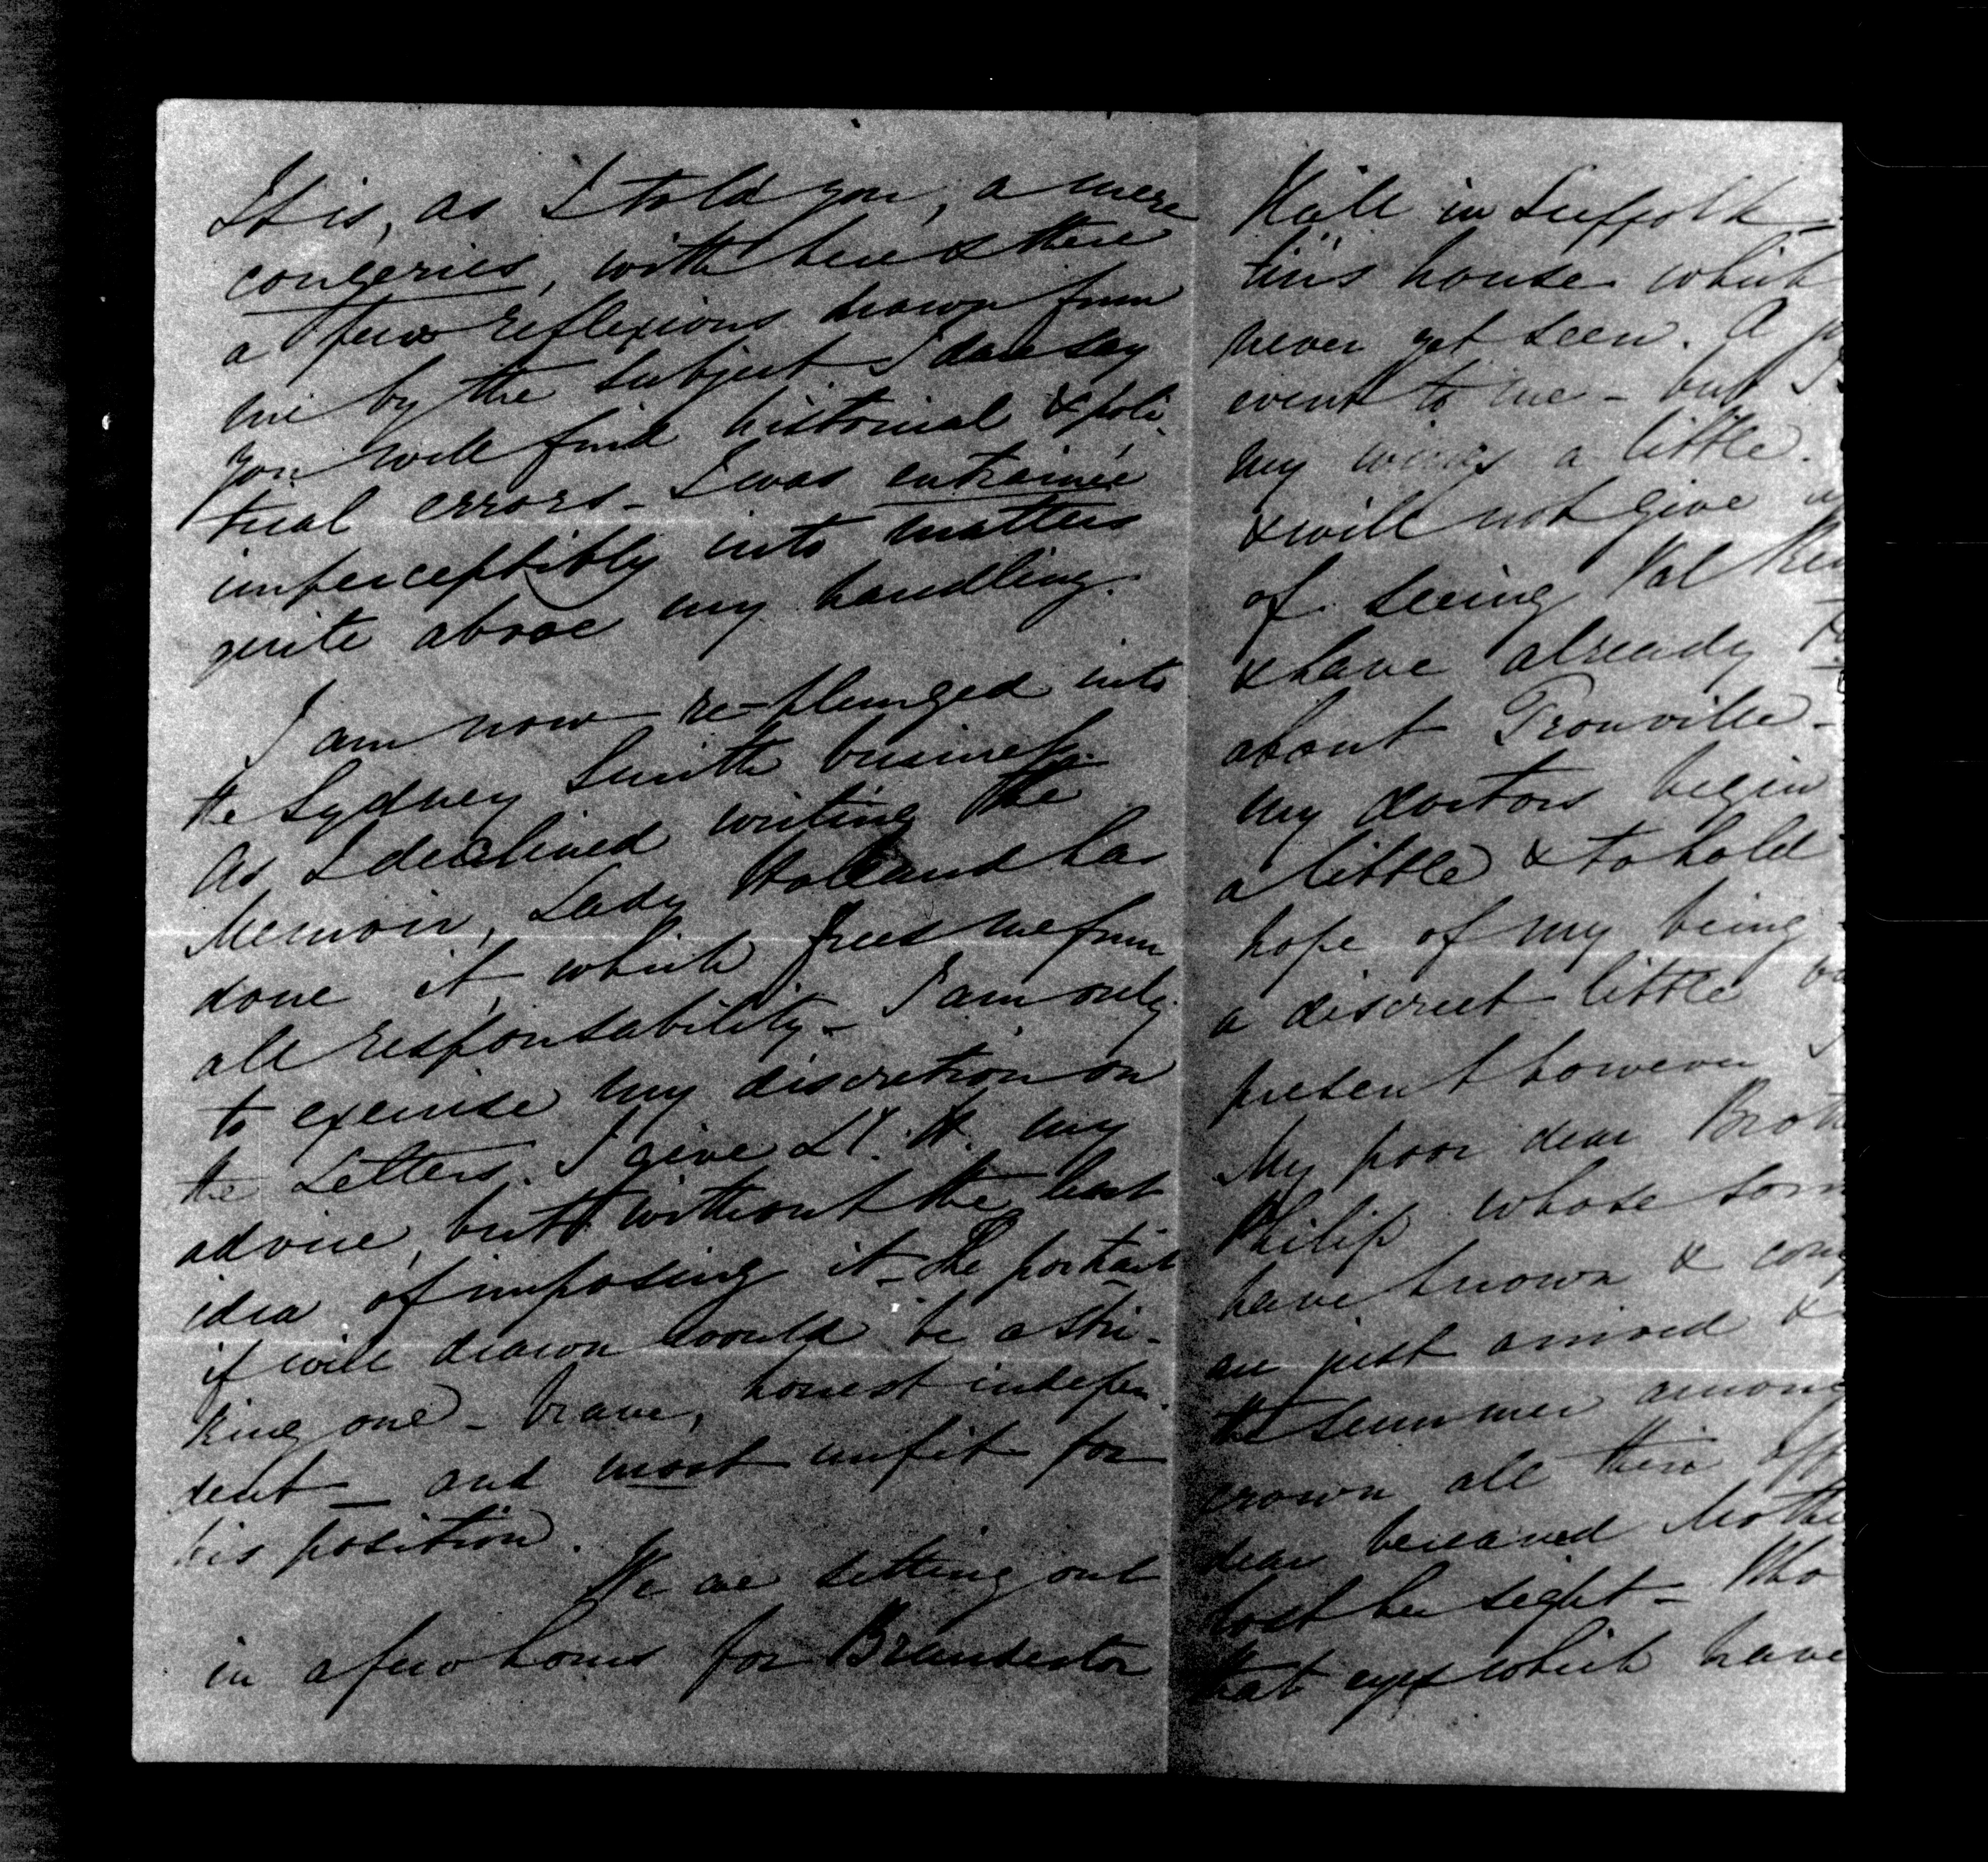 It is, as I told you, a mere
congeries, with here & there
a few reflexions drawn from
me by the subject I dare say
you will find historical & poli-
tical errors - I was entrainée
imperceptibly into matters
quite above my handling.
I am now re-plunged into
the Sydney Smith business.
As I declined writing the
Memoir, Lady Holland has
done it, which frees me from
all responsability - I am only
to exercise my discretion on
the Letters. I give Ly. H. my
advice, but without the least
idea of imposing it - The portrait
if well drawn would be a stri-
king one - brave, honest indepen-
dent - and most unfit for
his position.
We are setting out
in a few hours for Brandeston
Hall in Suffolk -
this house which
never yet seen. A
event to me - but I
my wings a little.
& will not give
of seeing Val
& have already
about Trouville -
my doctors begin
a little & to hold
hope of my being
a discreet little
present however
My poor dear Broth
Philip whose
have known &
are just arrived &
the summer among
crown all their
dear bereaved Mothe
lost her sight - Who
that eyes which have